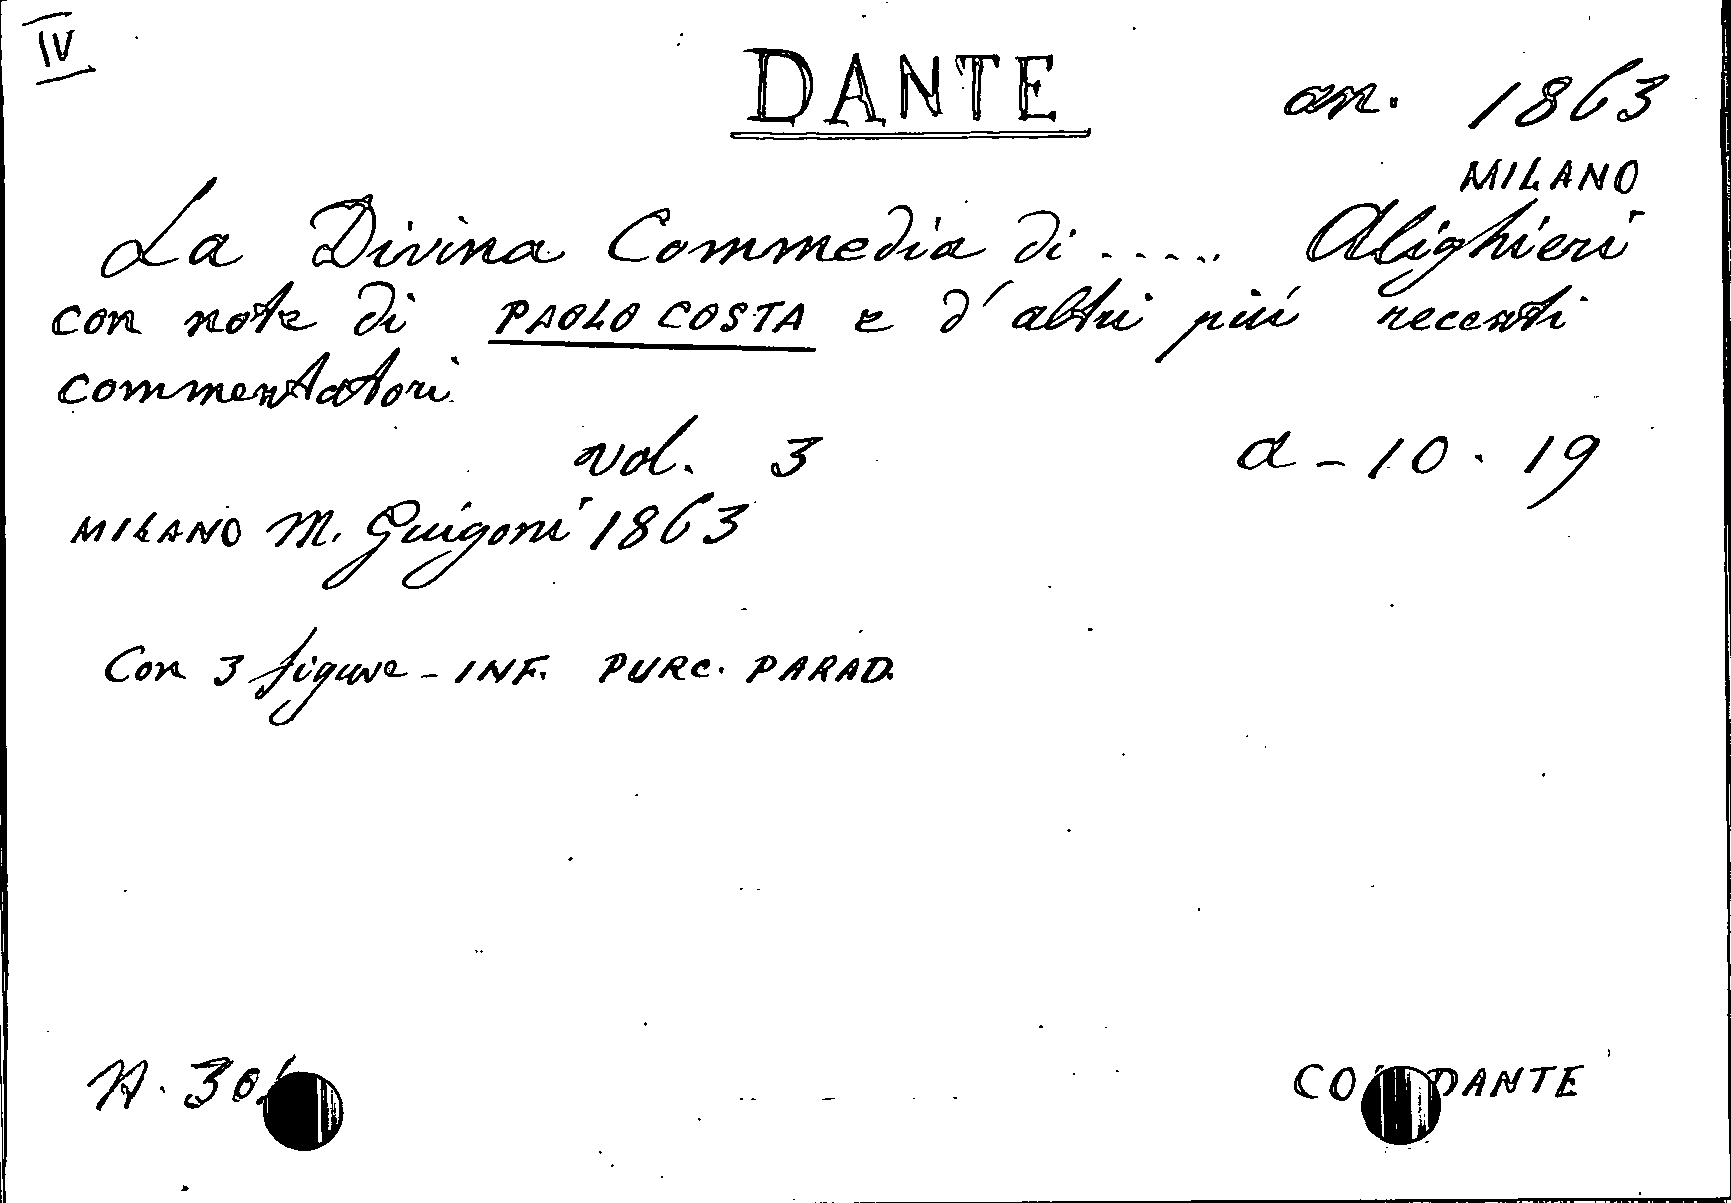 IV
DANTE
an. 1863
MILANO
La Divina Commedia di ..... Alighieri
con note di PAOLO COSTA e d'altri piú recenti
commentatori
vol. 3 a - 10 . 19
MILANO M. Guigoni 1863
Con 3 figure - INF. PURG. PARAD.
N. 30
CO DANTE